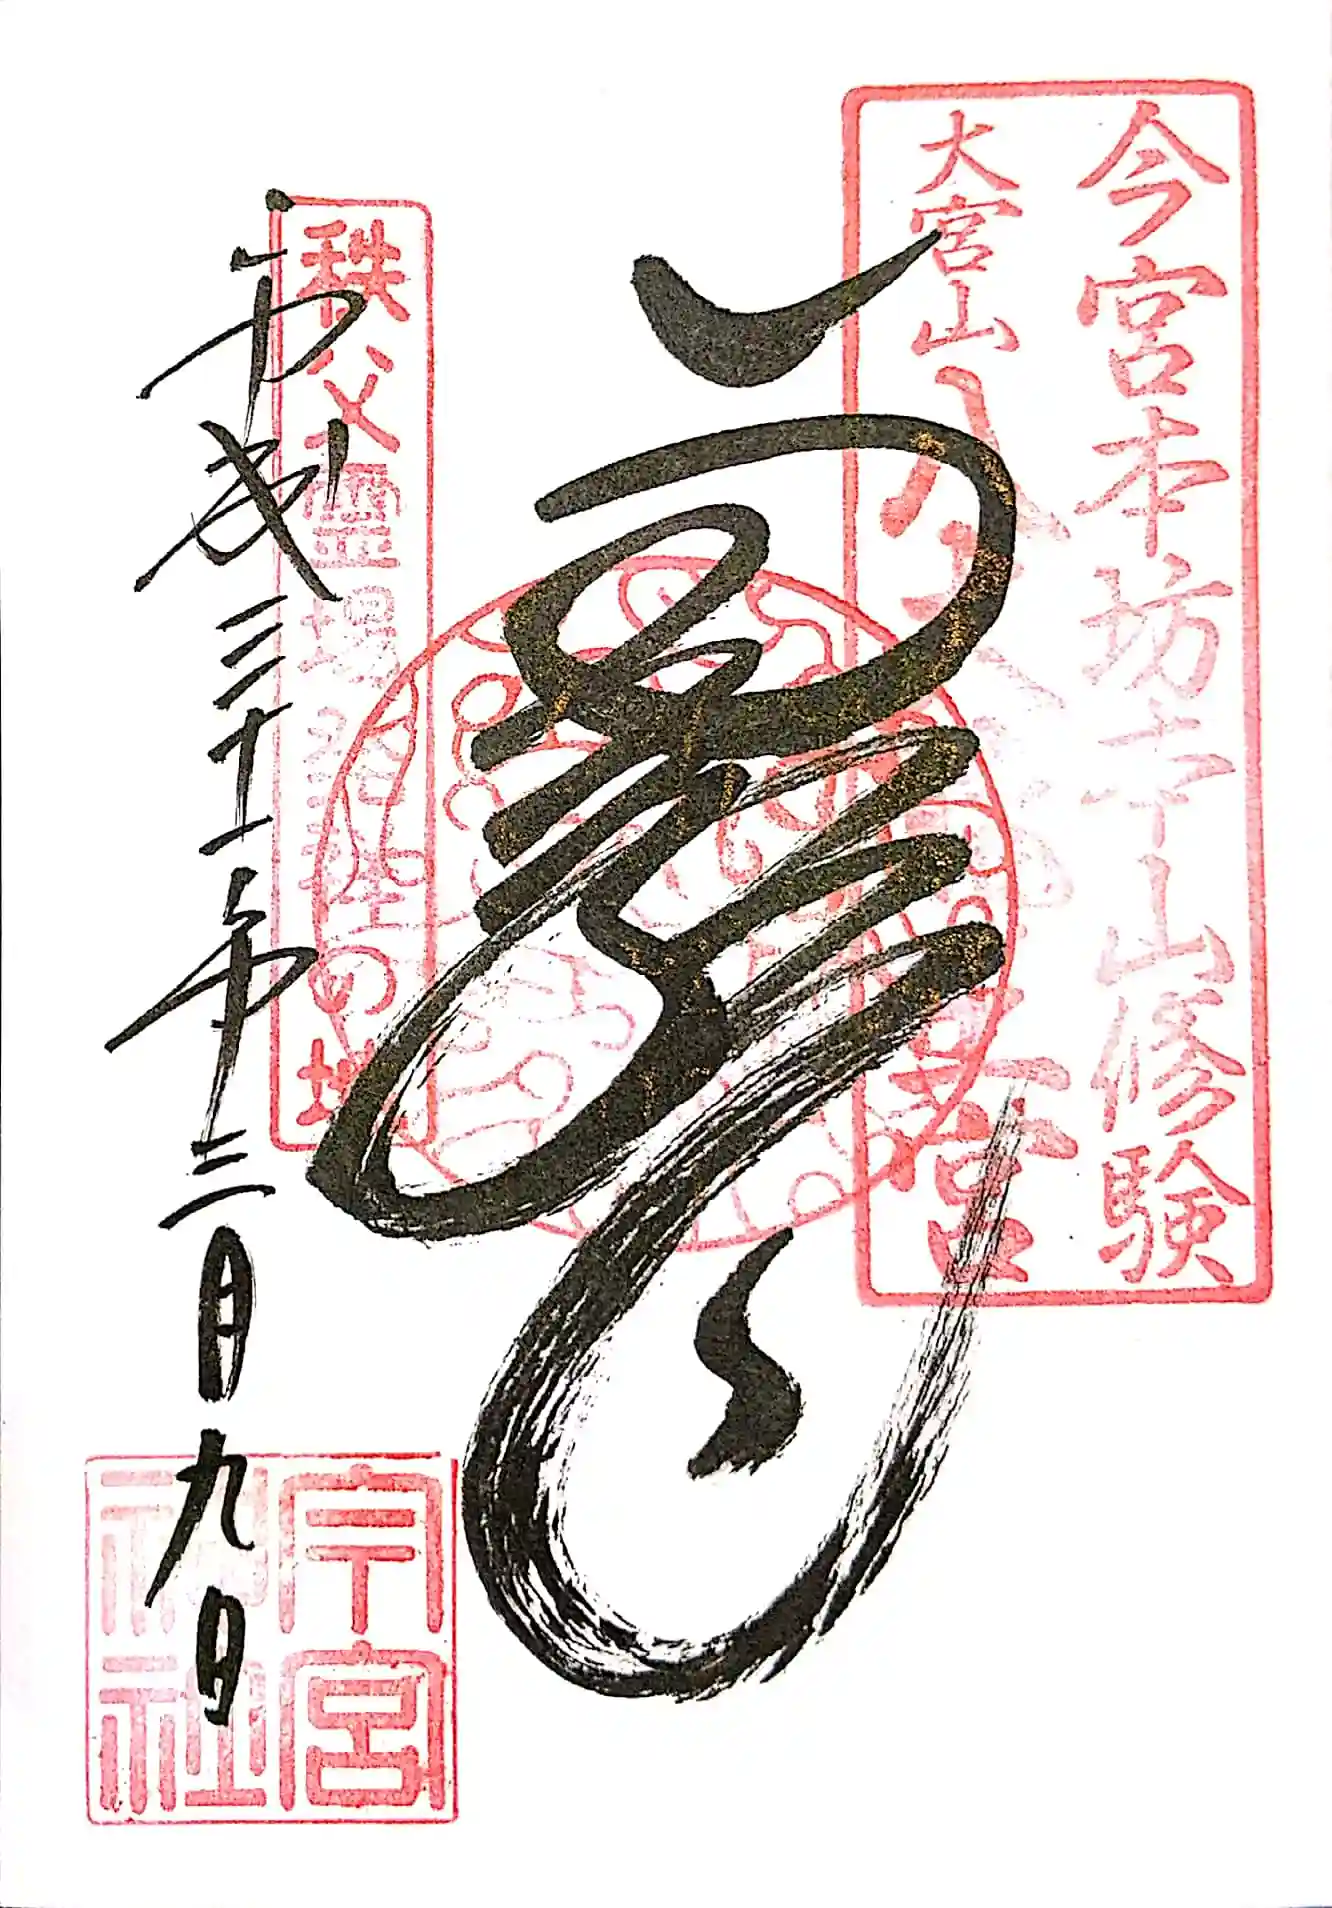 今宮本坊本山修験
大宮山八大龍王宮
龍
秩父靈場発祥の地
平成三十一年三月九日
今宮神社